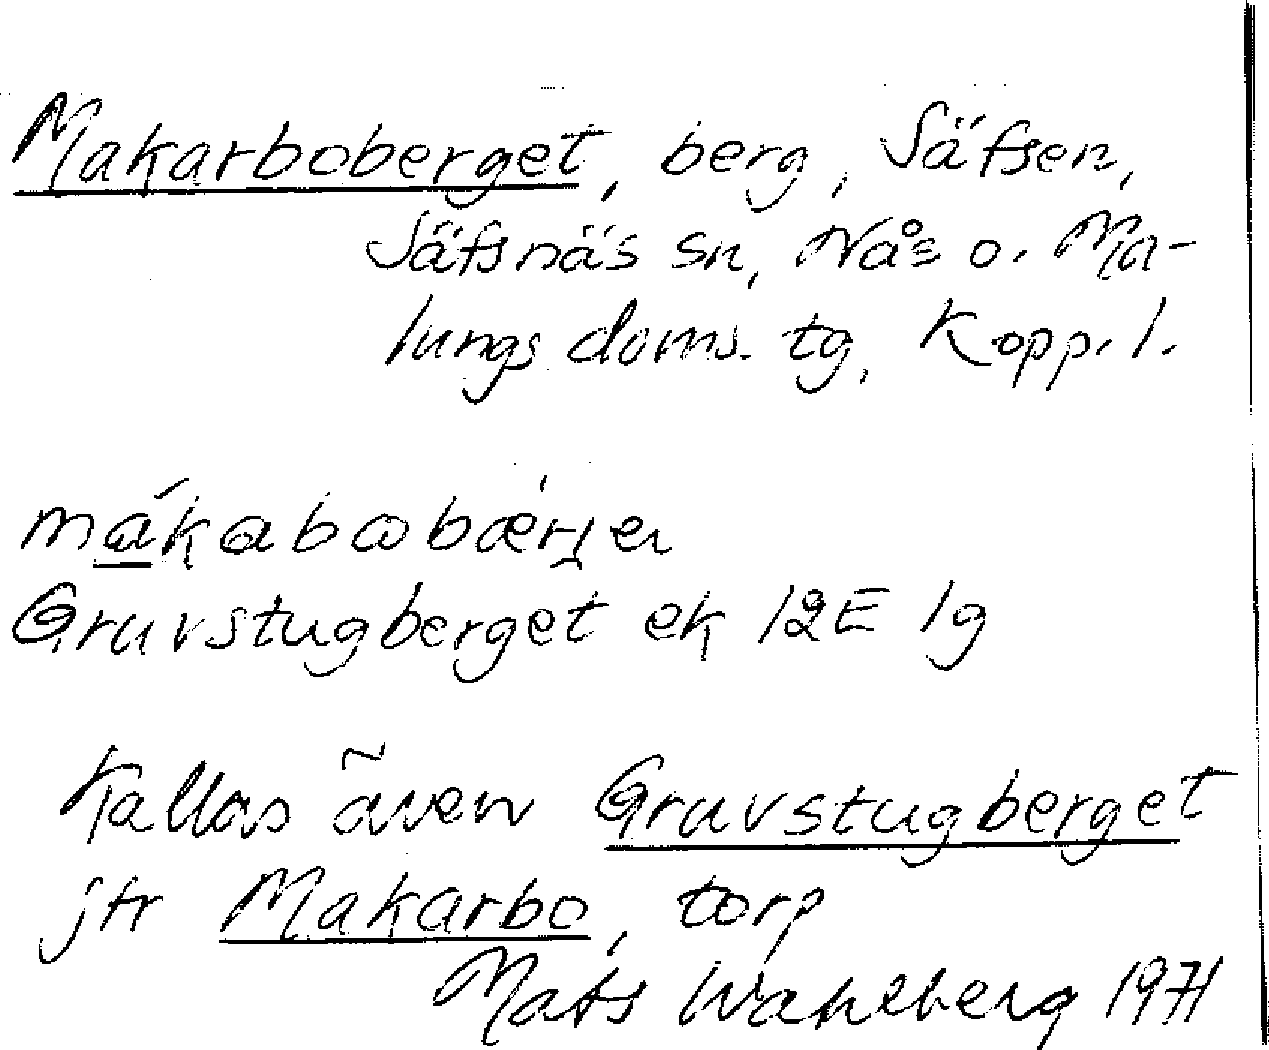 Makarboberget, berg, Säfsen,
Säfsnäs sn, Nås o. Ma-
lungs doms. tg, Kopp. l.
mákabobærjeṇ
Gruvstugberget ek 12E 1g
Kallas även Gruvstugberget
jfr Makarbo, torp
Mats Wahlberg 1971